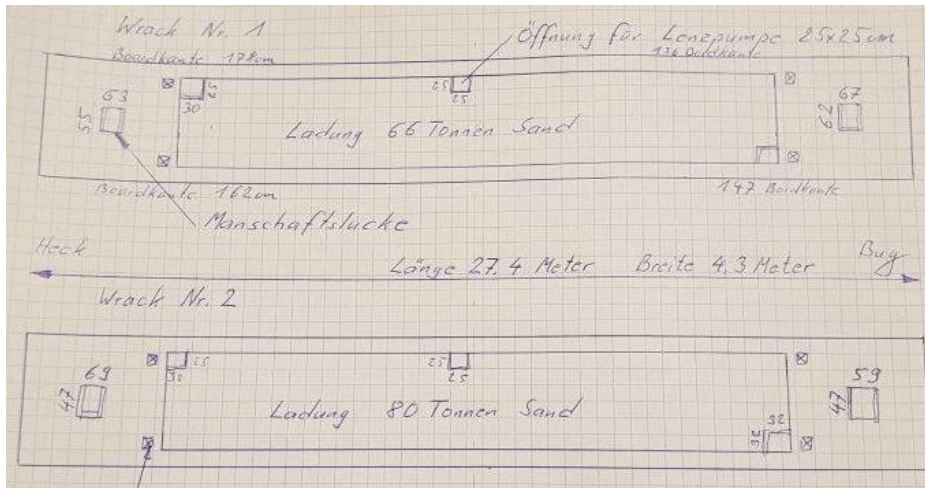 Wrack Nr. 1
Öffnung für Lenzpumpe 25x25cm
Boardkante 178cm
136 Bordkante
63
55
25
30
25
25
67
62
Ladung 66 Tonnen Sand
Boardkante 162cm
147 Bordkante
Manschaftslucke
Heck
Bug
Länge 27,4 Meter Breite 4,3 Meter
Wrack Nr. 2
69
47
25
25
25
59
47
32
32
Ladung 80 Tonnen Sand